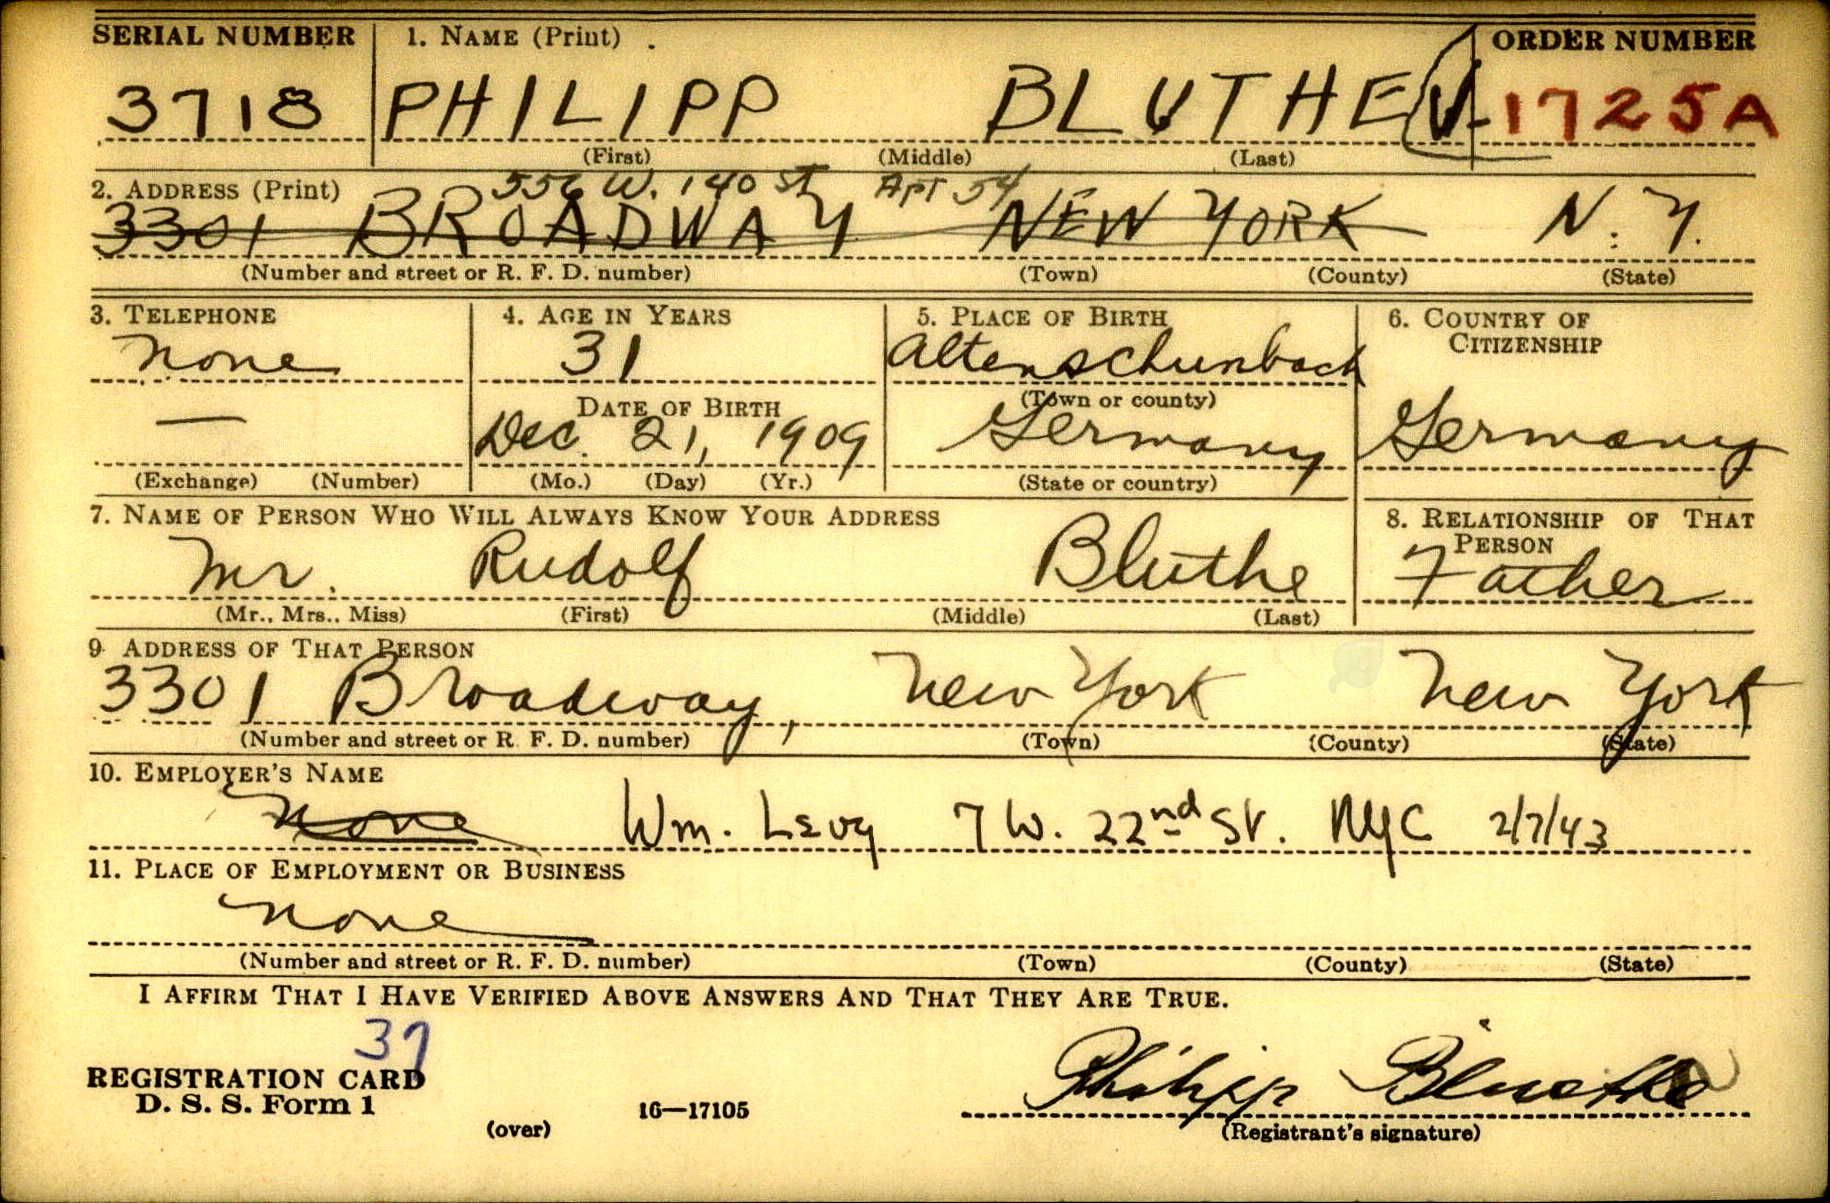 SERIAL NUMBER 1. NAME (Print) ORDER NUMBER
3718 PHILIPP BLUTHE 1725A
(First) (Middle) (Last)
2. ADDRESS (Print) 556 W. 140 St Apt 54
3301 BROADWAY NEW YORK N. Y.
(Number and street or R. F. D. number) (Town) (County) (State)
3. TELEPHONE 4. AGE IN YEARS 5. PLACE OF BIRTH 6. COUNTRY OF CITIZENSHIP
none 31 Altenschunbach
DATE OF BIRTH (Town or county)
— Dec. 21, 1909 Germany Germany
(Exchange) (Number) (Mo.) (Day) (Yr.) (State or country)
7. NAME OF PERSON WHO WILL ALWAYS KNOW YOUR ADDRESS 8. RELATIONSHIP OF THAT PERSON
Mr. Rudolf Bluthe Father
(Mr., Mrs., Miss) (First) (Middle) (Last)
9. ADDRESS OF THAT PERSON
3301 Broadway, New York New York
(Number and street or R. F. D. number) (Town) (County) (State)
10. EMPLOYER'S NAME
None Wm. Levy 7 W. 22nd St. NYC 2/7/43
11. PLACE OF EMPLOYMENT OR BUSINESS
None
(Number and street or R. F. D. number) (Town) (County) (State)
I AFFIRM THAT I HAVE VERIFIED ABOVE ANSWERS AND THAT THEY ARE TRUE.
37
REGISTRATION CARD
D. S. S. Form 1 16—17105 Philipp Bluethe
(over) (Registrant's signature)